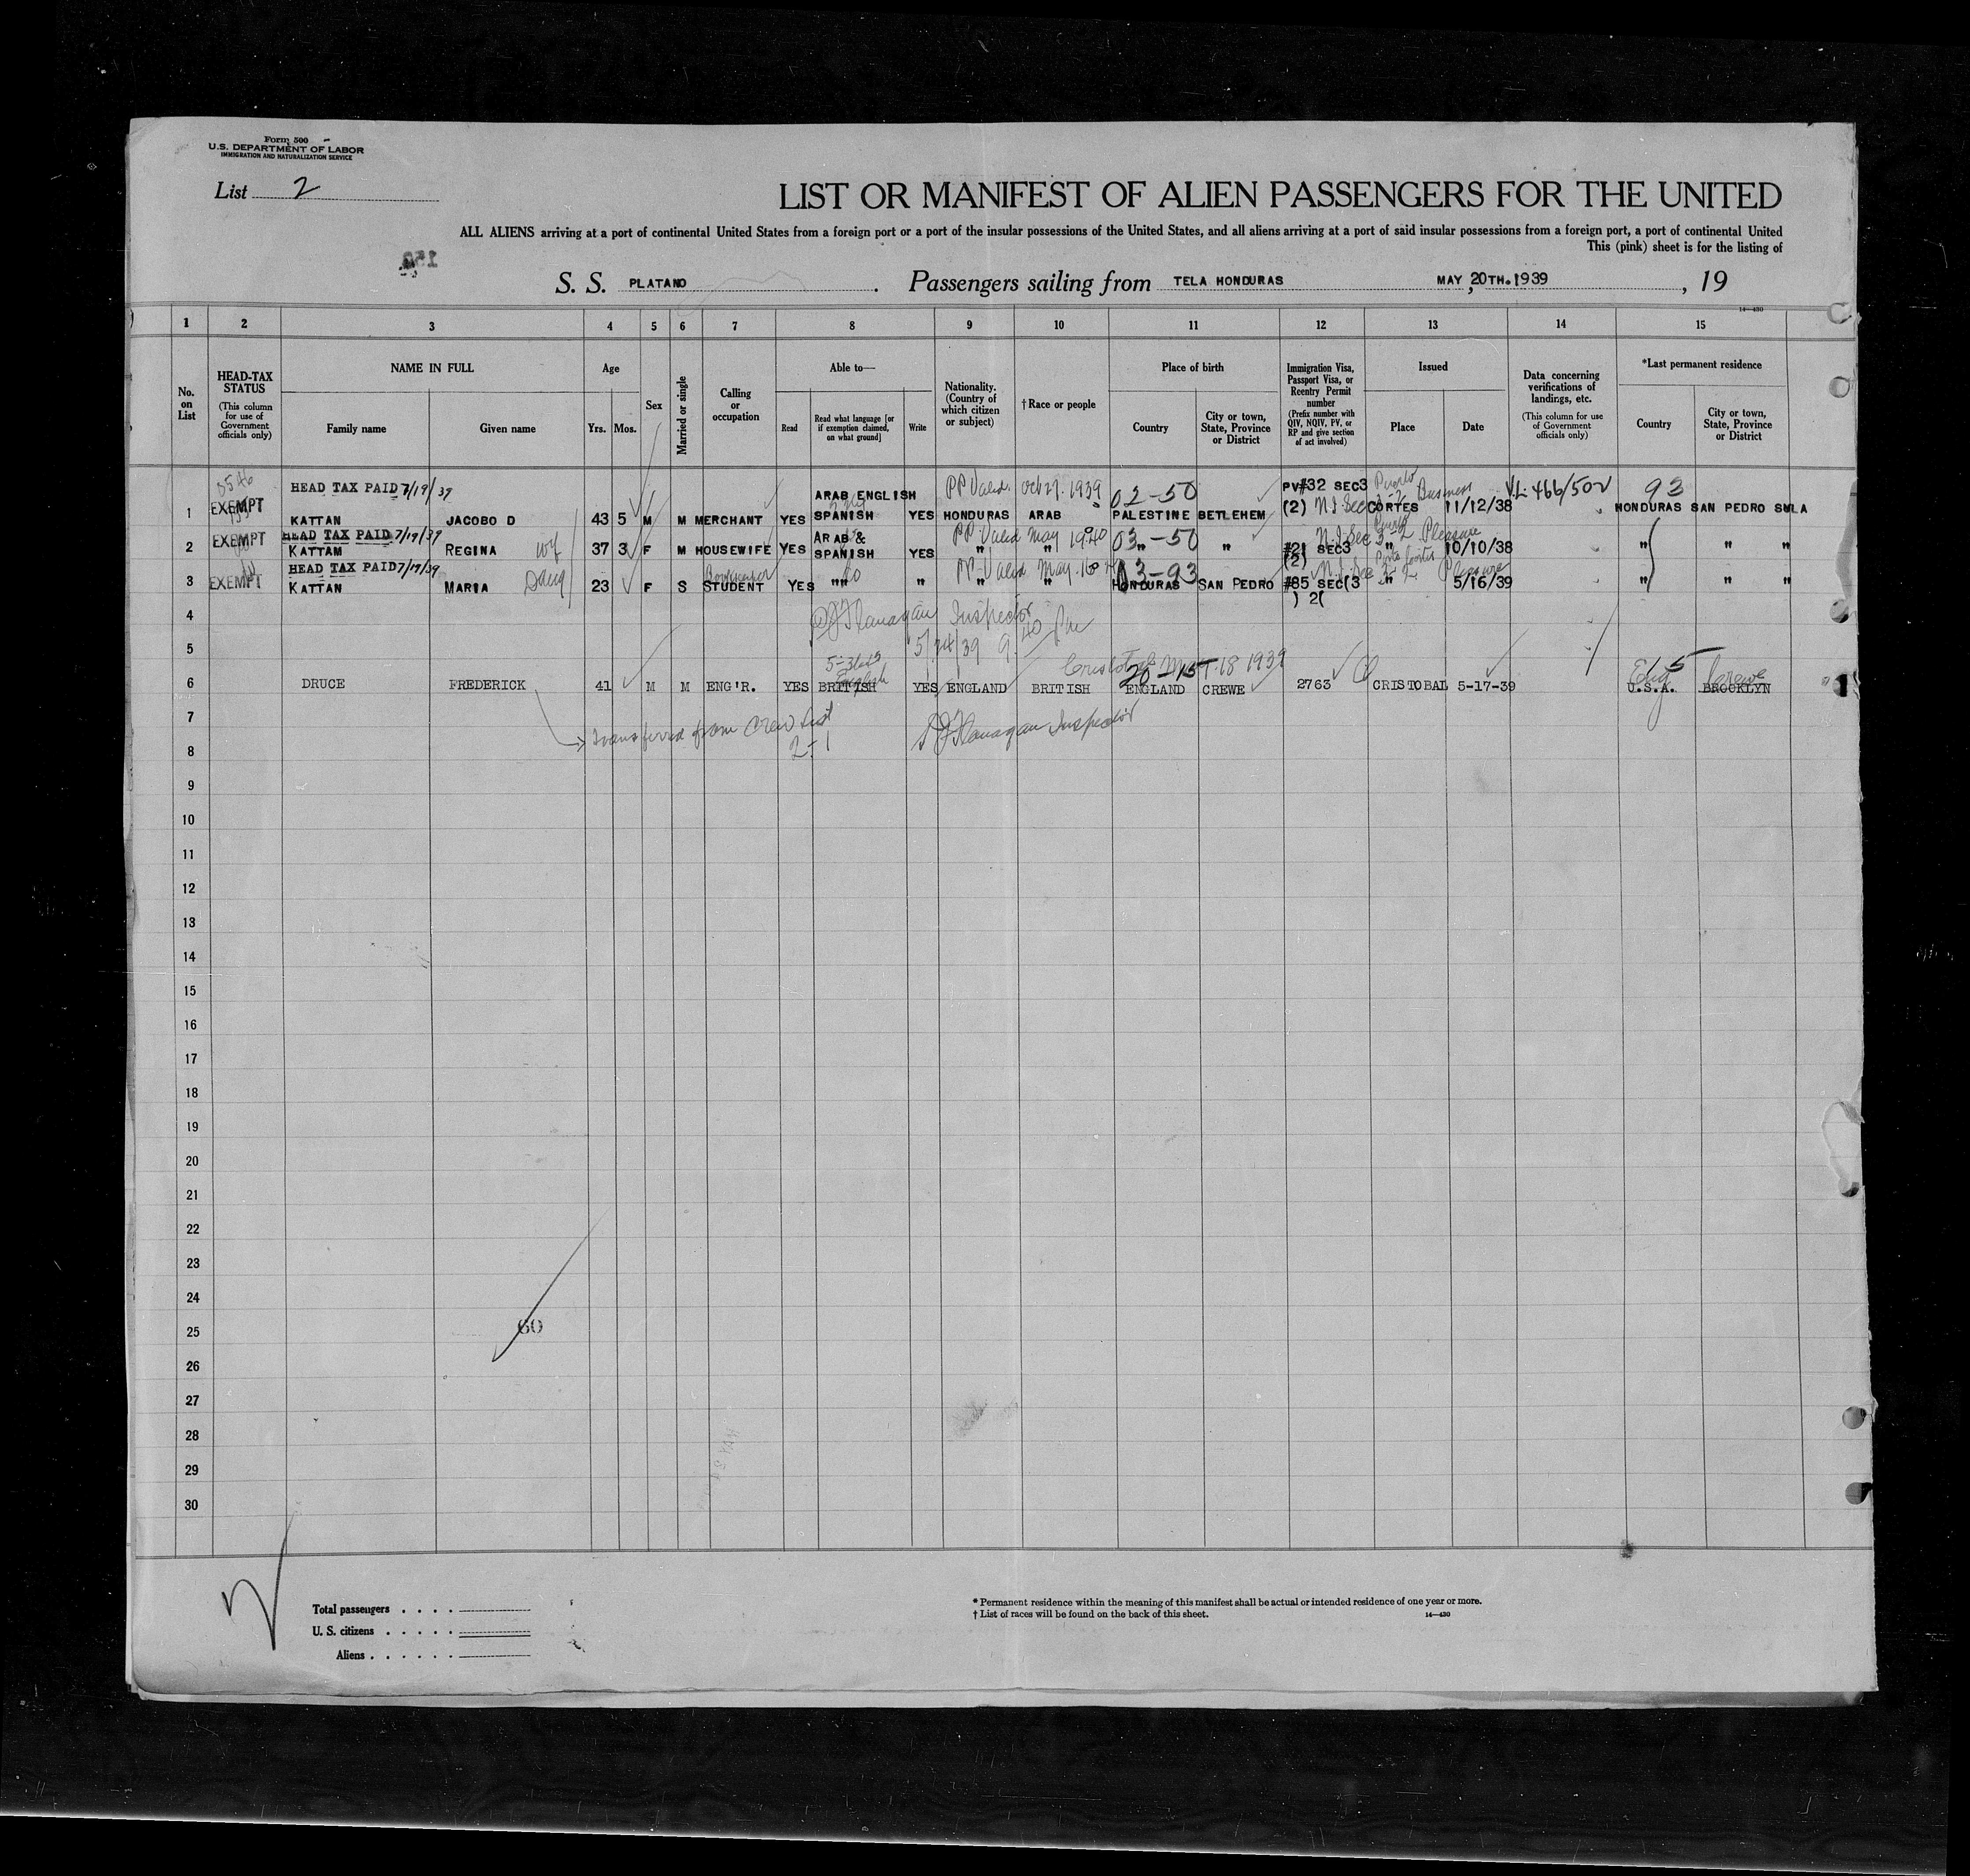 Form 500
U.S. DEPARTMENT OF LABOR
IMMIGRATION AND NATURALIZATION SERVICE
List 2
LIST OR MANIFEST OF ALIEN PASSENGERS FOR THE UNITED
ALL ALIENS arriving at a port of continental United States from a foreign port or a port of the insular possessions of the United States, and all aliens arriving at a port of said insular possessions from a foreign port, a port of continental United
This (pink) sheet is for the listing of
S. S. PLATANO . Passengers sailing from TELA HONDURAS MAY 20TH.1939 , 19
14—430
1 2 3 4 5 6 7 8 9 10 11 12 13 14 15
No. on List
HEAD-TAX STATUS
(This column for use of Government officials only)
NAME IN FULL
Family name Given name
Age
Yrs. Mos.
Sex
Married or single
Calling or occupation
Able to—
Read Read what language [or if exemption claimed, on what ground] Write
Nationality. (Country of which citizen or subject)
†Race or people
Place of birth
Country City or town, State, Province or District
Immigration Visa, Passport Visa, or Reentry Permit number
(Prefix number with QIV, NQIV, PV, or RP and give section of act involved)
Issued
Place Date
Data concerning verifications of landings, etc.
(This column for use of Government officials only)
*Last permanent residence
Country City or town, State, Province or District
HEAD TAX PAID 7/19/39 ARAB ENGLISH PP Valid Oct 27. 1939 02-50 PV#32 SEC3 Puerto Business V.L. 466/502 93
1 EXEMPT KATTAN JACOBO D 43 5 M M MERCHANT YES SPANISH YES HONDURAS ARAB PALESTINE BETLEHEM (2) N.I. Sec 3-2 CORTES 11/12/38 HONDURAS SAN PEDRO SULA
HEAD TAX PAID 7/19/39 ARAB & PP. Valid May 1940 03-50 N.I. Sec 3-2 Puerto Pleasure
2 EXEMPT KATTAM REGINA wf 37 3 F M HOUSEWIFE YES SPANISH YES " " " " #21 SEC3 (2) " 10/10/38 " " "
HEAD TAX PAID 7/19/39 Bookkeeper do PP. Valid May. 03-93 N.I. Sec 3-2 Pleasure
3 EXEMPT KATTAN MARIA Daug 23 F S STUDENT YES "" " " " HONDURAS SAN PEDRO #85 SEC(3 ) 2( " 5/16/39 " " "
4 Flanagan Inspector
5 5/24/39 9 40 Pm
5-3 English Cristobal 1939 20-15 Eng 5 Crewe
6 DRUCE FREDERICK 41 M M ENG'R. YES BRITISH YES ENGLAND BRITISH ENGLAND CREWE 2763 CRISTOBAL 5-17-39 U.S.A. BROOKLYN
7
8 transferred from Crew List 2-1 Flanagan Inspector
9
10
11
12
13
14
15
16
17
18
19
20
21
22
23
24
25 60
26
27
28
29
30
Total passengers . . . .
U. S. citizens . . . . .
Aliens . . . . . .
* Permanent residence within the meaning of this manifest shall be actual or intended residence of one year or more.
† List of races will be found on the back of this sheet. 14—430